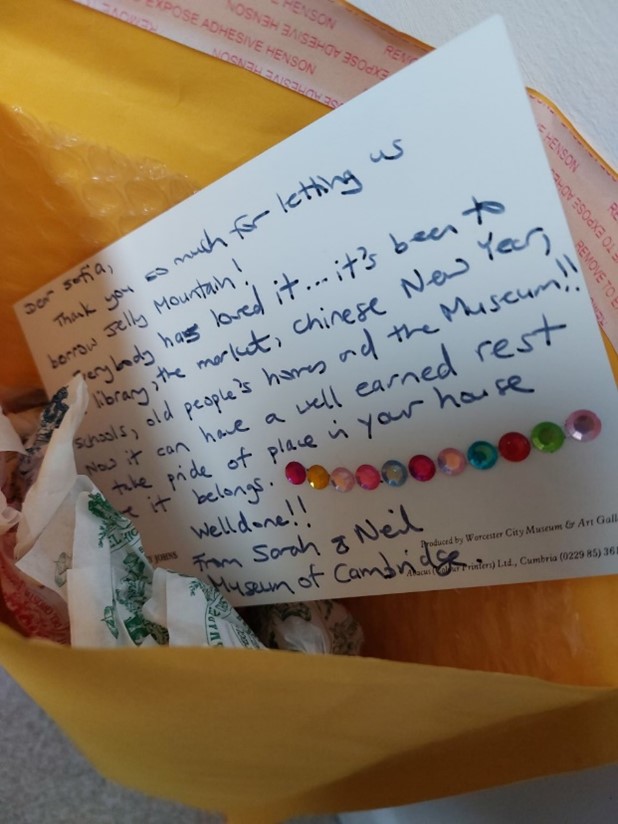 EXPOSE ADHESIVE HENSON
REMOVE TO EXPOSE ADHESIVE HENSON
Dear Sofia,
Thank you so much for letting us
borrow Jelly Mountain!
Everybody has loved it... it's been to
library, the market, Chinese New Year,
schools, old people's homes and the Museum!!
Now it can have a well earned rest
take pride of place in your house
it belongs.
Welldone!!
From Sarah & Neil
Museum of Cambridge.
Produced by Worcester City Museum & Art
Abacus (Colour Printers) Ltd., Cumbria (0229 85) 36